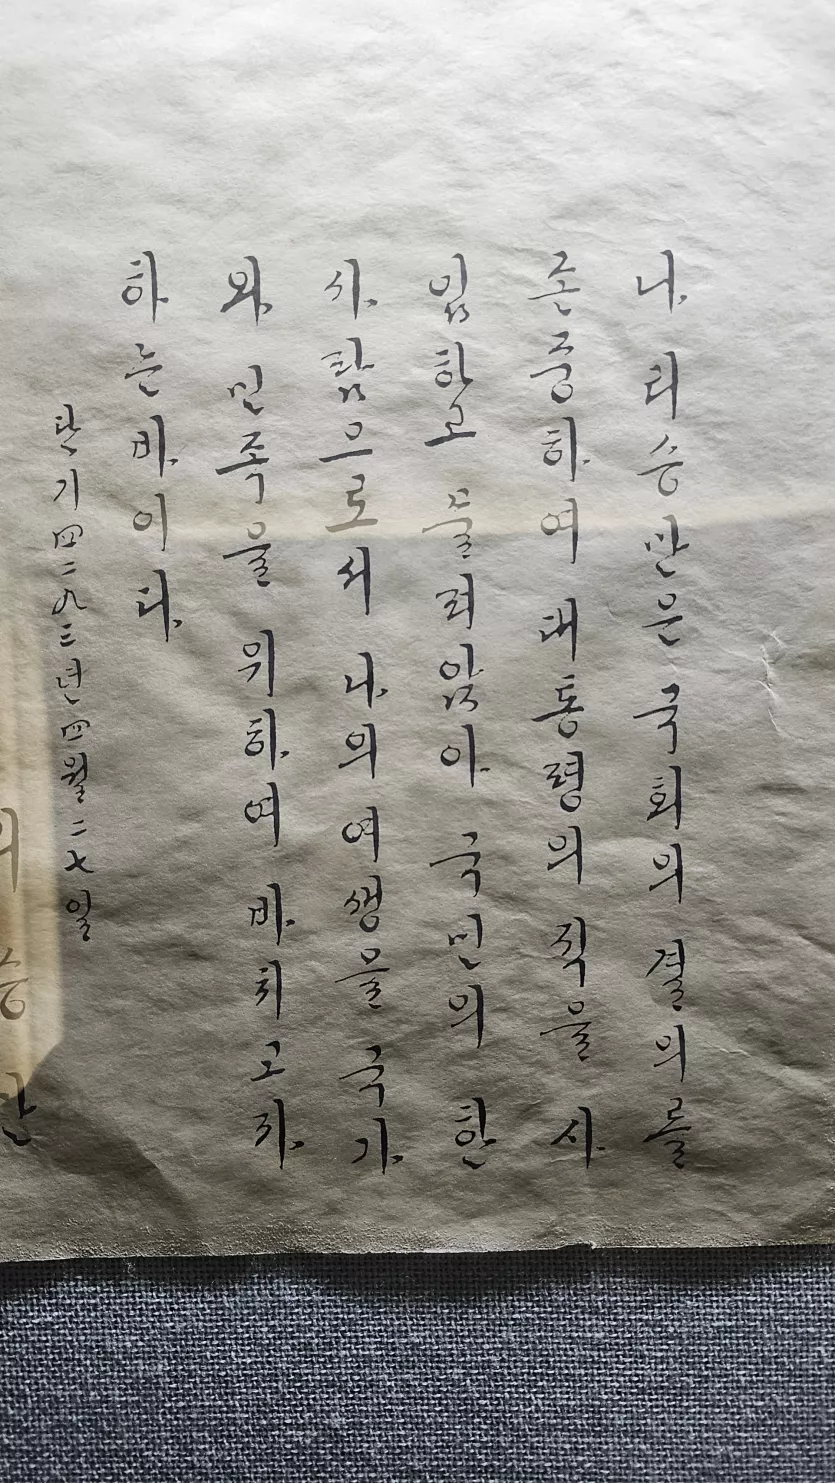 나 리승만은 국회의 결의를
존중하여 대통령의 직을 사
임하고 물러앉아 국민의 한
사람으로서 나의 여생을 국가
와 민족을 위하여 바치고자
하는바이다
단기四二九三년四월二七일
리승만